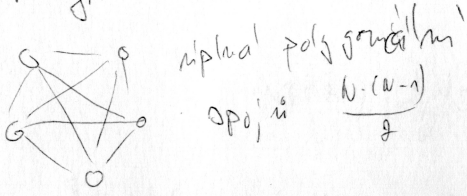 úplná polygonální
spojů N·(N-1)/2